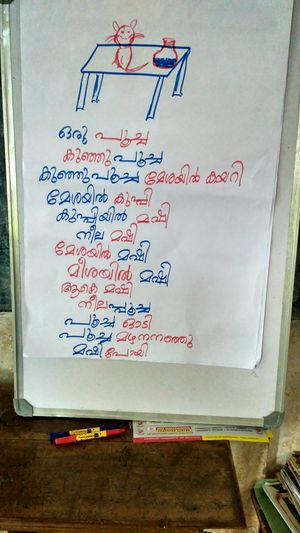 ഒരു പൂച്ച
കുഞ്ഞു പൂച്ച
കുഞ്ഞുപൂച്ച മേശയിൽ കയറി
മേശയിൽ കുപ്പി
കുപ്പിയിൽ മഷി
നീല മഷി
മേശയിൽ മഷി
മീശയിൽ മഷി
ആകെ മഷി
നീലപ്പൂച്ച
പൂച്ച ഓടി
പൂച്ച മഴനനഞ്ഞു
മഷി പോയി